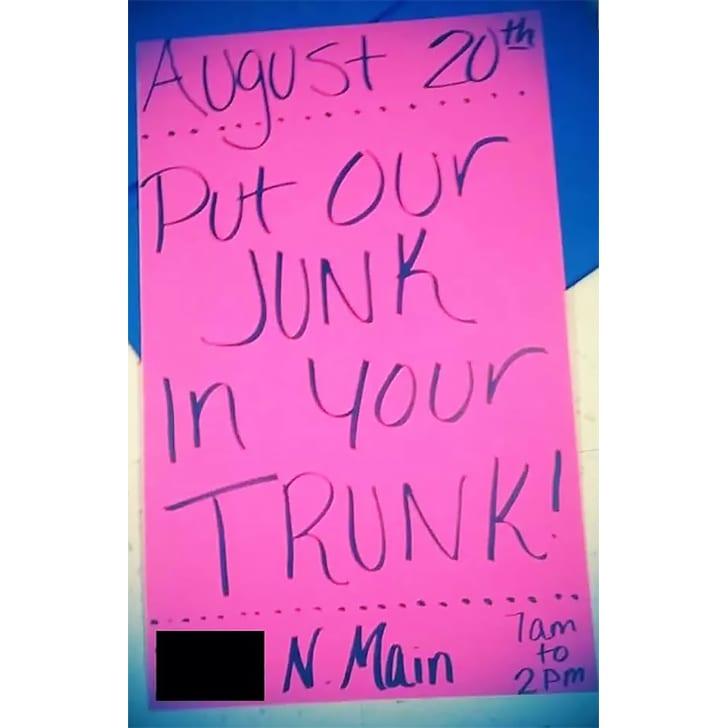 August 20th
Put Our
JUNK
In Your
TRUNK!
N. Main
7am
to
2pm